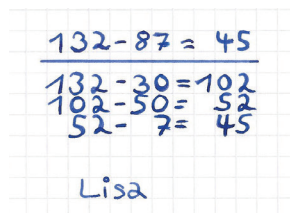 132-87= 45
132-30=102
102-50= 52
52- 7= 45
Lisa